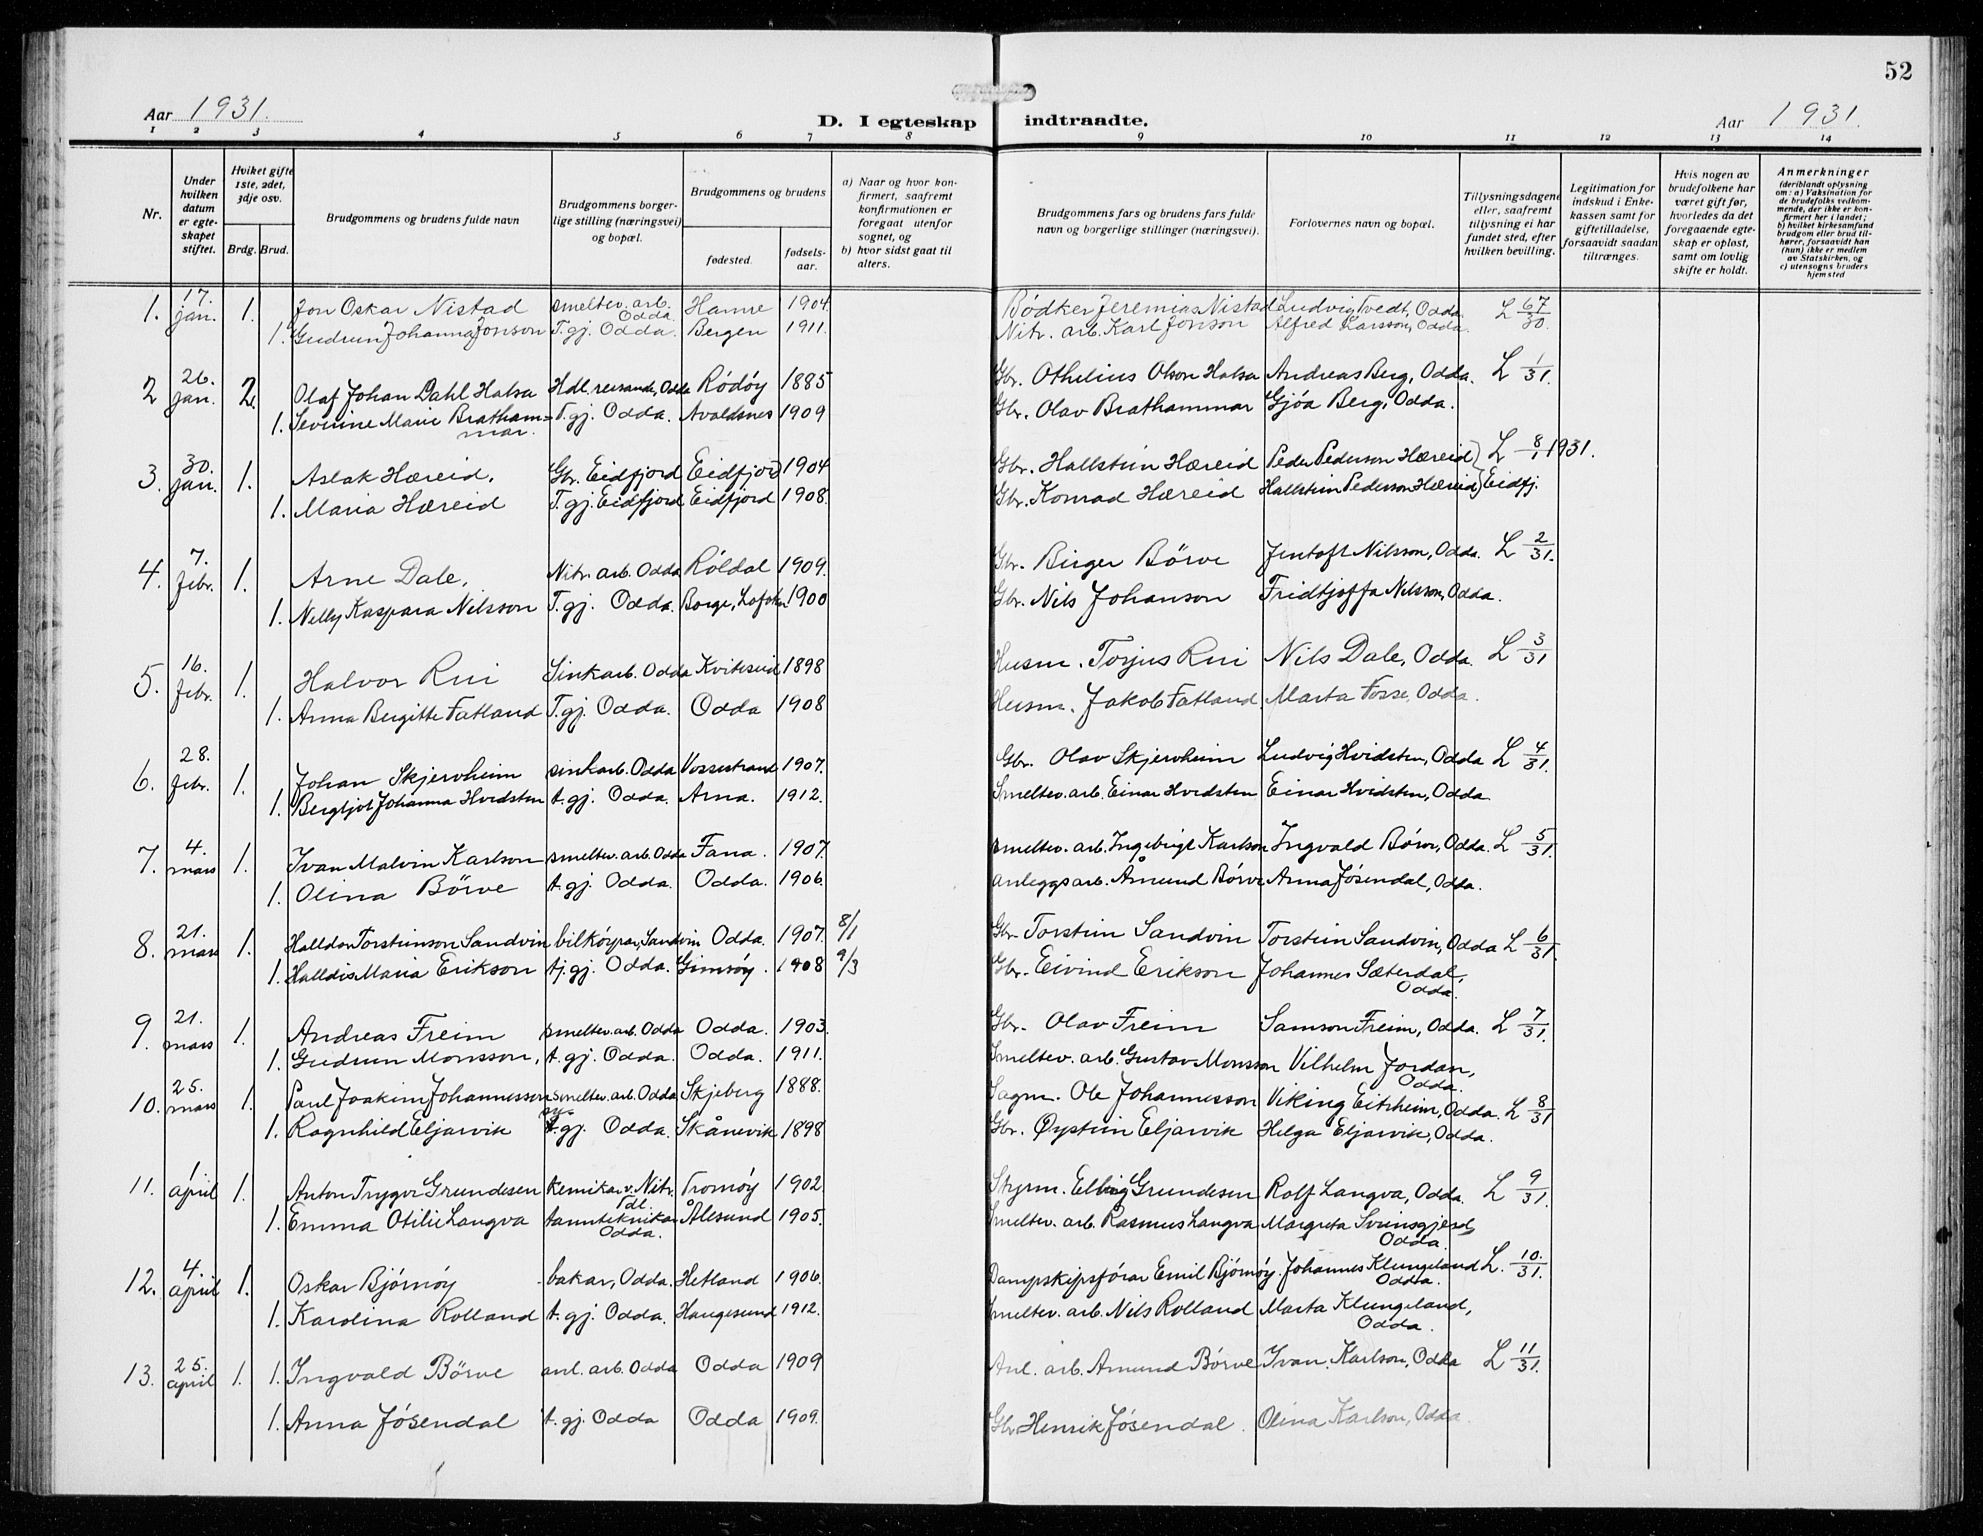 52
Aar 1931.
D. I egteskap indtraadte.
Aar 1931.
1 2 3 4 5 6 7 8 9 10 11 12 13 14
Nr.
Under hvilken datum er egteskapet stiftet.
Hviket gifte 1ste, 2det, 3dje osv.
Brdg. Brud.
Brudgommens og brudens fulde navn
Brudgommens borgerlige stilling (næringsvei) og bopæl.
Brudgommens og brudens
fødested. fødselsaar.
a) Naar og hvor konfirmert, saafremt konfirmationen er foregaat utenfor sognet, og
b) hvor sidst gaat til alters.
Brudgommens fars og brudens fars fulde navn og borgerlige stillinger (næringsvei).
Forlovernes navn og bopæl.
Tillysningsdagene eller, saafremt tillysning ei har fundet sted, efter hvilken bevilling.
Legitimation for indskud i Enkekassen samt for giftetilladelse, forsaavidt saadan tiltrænges.
Hvis nogen av brudefolkene har været gift før, hvorledes da det foregaaende egteskap er opløst, samt om lovlig skifte er holdt.
Anmerkninger
(deriblandt oplysning om: a) Vaksination for de brudefolks vedkommende, der ikke er konfirmert her i landet; b) hvilket kirkesamfund brudgom eller brud tilhører, forsaavidt han (hun) ikke er medlem av Statskirken, og c) utensogns bruders hjemsted
1. 17. jan. 1. Jon Oskar Nistad smeltev. arb. Odda. Hamre 1904. Bødker Jeremias Nistad Ludvig Tvedt, Odda. L 67/30.
1. Gudrun Johanna Jonson T. gj. Odda. Bergen 1911. Nitr. arb. Karl Jonson Alfred Karsson, Odda.
2 26. jan. 2. Olaf Johan Dahl Halsa Hdl. reisande, Odda Rødøy 1885 Gbr. Othelius Olson Halsa Andreas Berg, Odda. L 1/31.
1. Severine Marie Brathammar. T. gj. Odda. Avaldsnes 1909 Gbr. Olav Brathammar Gjøa Berg, Odda.
3. 30. jan. 1. Aslak Hæreid, Gbr. Eidfjord Eidfjord 1904 Gbr. Hallstein Hæreid Peder Pederson Hæreid} L 8/1 1931.
1. Maria Hæreid T. gj. Eidfjord Eidfjord 1908. Gbr. Konrad Hæreid Hallstein Pederson Hæreid} Eidfj.
4. 7. febr. 1. Arne Dale, Nitr. arb. Odda Røldal 1909. Gbr. Birger Børve Jentoft Nilsson, Odda. L 2/31.
1. Nelly Kaspara Nilsson T. gj. Odda. Borge, Lofoten 1900 Gbr. Nils Johanson Fridtjoffa Nilsson, Odda.
5. 16. febr. 1. Halvor Rui Sinkarb. Odda Kviteseid 1898 Husm. Torjus Rui Nils Dale, Odda. L 3/31
1. Anna Bergitte Fatland T. gj. Odda. Odda 1908 Husm. Jakob Fatland Marta Fosse, Odda.
6. 28. febr. 1. Johan Skjervheim sinkarb. Odda Vossestrand 1907. Gbr. Olav Skjervheim Ludvig Hvidsten, Odda L 4/31.
1. Bergljot Johanna Hvidsten t. gj. Odda. Arna. 1912. Smeltev. arb. Einar Hvidsten Einar Hvidsten, Odda
7. 4. mars 1. Ivan Malvin Karlson smeltev. arb. Odda Fana. 1907. smeltev. arb. Ingebrigt Karlson Ingvald Børve, Odda. L 5/31.
1. Olina Børve t. gj. Odda. Odda. 1906. anleggsarb. Åmund Børve Anna Jøsendal, Odda.
8. 21. mars 1. Halldor Torsteinson Sandvin bilkøyrar, Sandvin Odda. 1907. 8/1 Gbr. Torstein Sandvin Torstein Sandvin, Odda L 6/31.
1. Halldis Maria Erikson tj. gj. Odda. Gimsøy. 1908 9/3 Gbr. Eivind Erikson Johannes Sæterdal, Odda.
9. 21. mars 1. Andreas Freim smeltev. arb. Odda Odda. 1903. Gbr. Olav Freim Samson Freim, Odda. L 7/31.
1. Gudrun Monsson, t. gj. Odda. Odda. 1911. Smeltev. arb. Gustav Monsson Vilhelm Jordan, Odda.
10. 25. mars 1. Paul Joakim Johannesson smeltev. arb. Odda Skjeberg 1888. Sagm. Ole Johannesson Viking Eitrheim, Odda. L 8/31
1. Ragnhild Eljarvik sy gj. Odda. Skånevik 1898 Gbr. Øystein Eljarvik Helga Eljarvik, Odda.
11. 1 april 1. Anton Trygve Grundesen kemikar v. Nitr. Tdl. Tromøy 1902. Styrm. Elling Grundesen Rolf Langva, Odda. L 9/31.
1. Emma Otilie Langva tannteknikar Odda. Ålesund 1905. Smeltev. arb. Rasmus Langva Margreta Svinsgjerd, Odda.
12. 4. april 1. Oskar Bjørnøy bakar, Odda. Hetland 1906. Dampskipsførar Emil Bjørnøy. Johannes Klungeland Odda. L. 10./31.
1. Karolina Rolland t. gj. Odda. Haugesund 1912. Smeltev. arb. Nils Rolland Marta Klungeland, Odda.
13. 25. april 1. 1. Ingvald Børve anl. arb. Odda Odda 1909 Anl. arb. Amund Børve Ivan Karlson, Odda L 11/31.
1. Anna Jøsendal t. gj. Odda Odda 1909. Gbr Henrik Jøsendal. Olina Karlson, Odda.